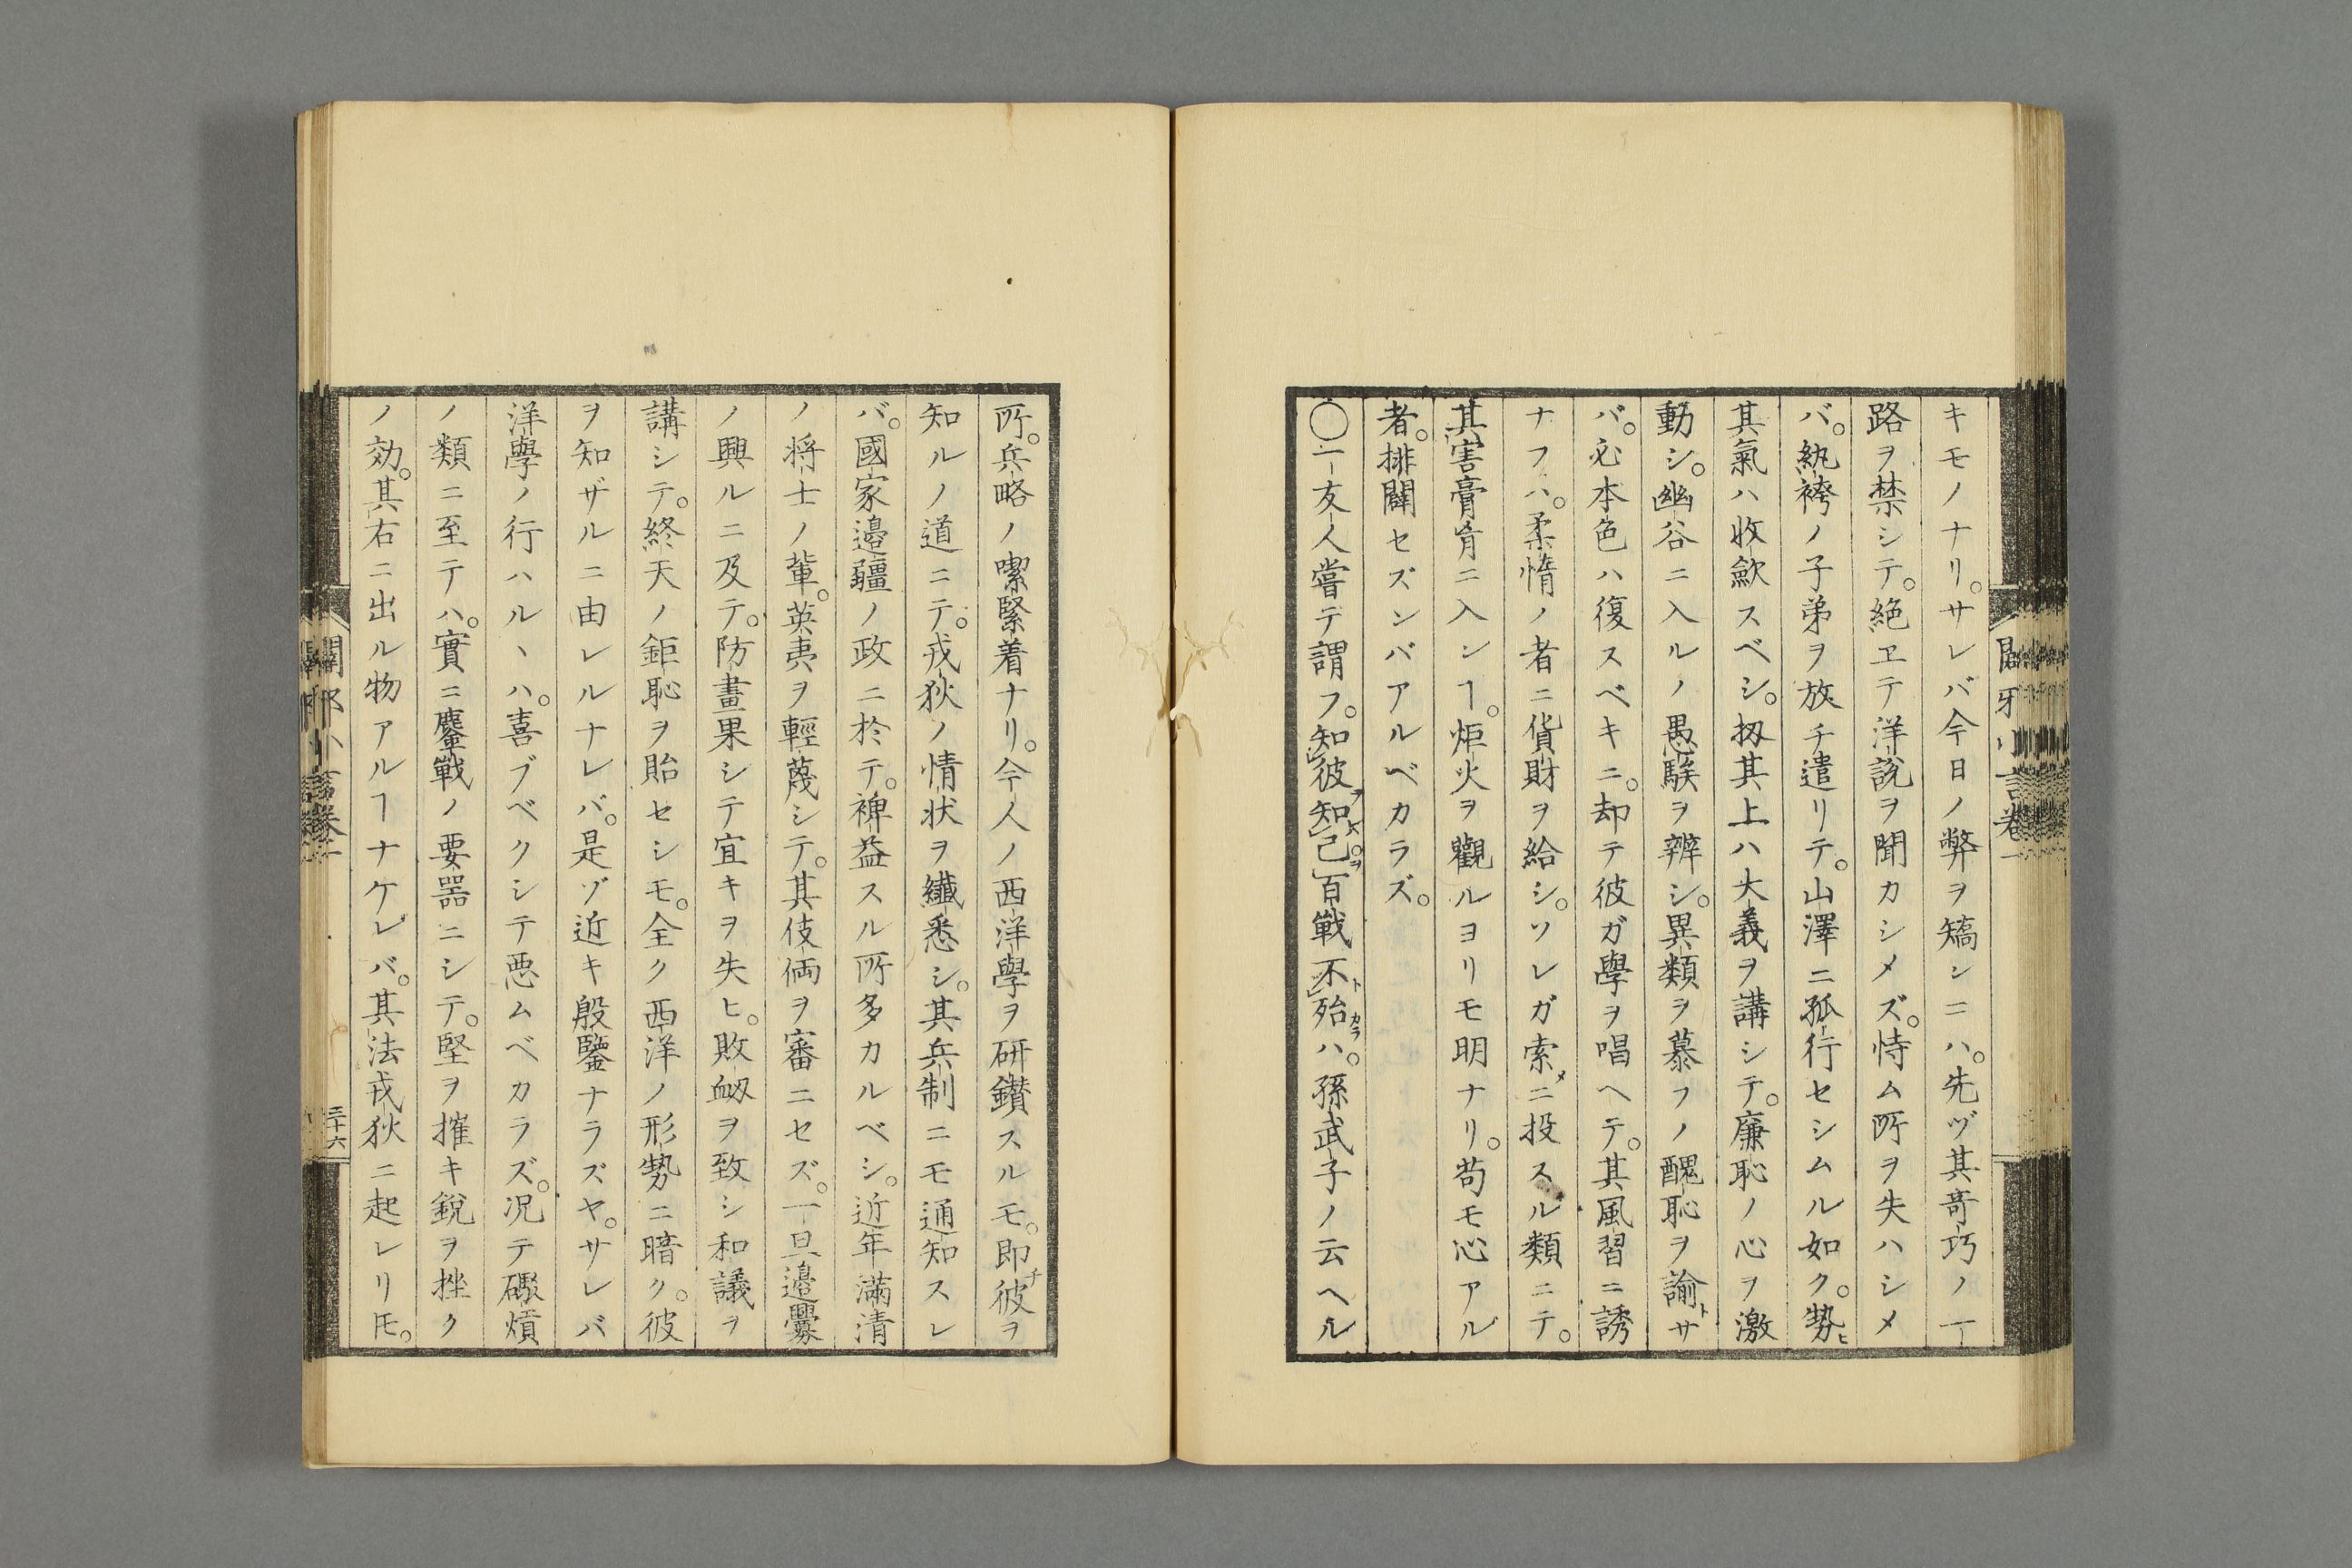 キモノナリ。サレバ今日ノ弊ヲ矯ンニハ。先ヅ其奇巧ノ一
路ヲ禁シテ。絶ヱテ洋説ヲ聞カシメズ。恃ム所ヲ失ハシメ
バ。紈袴ノ子弟ヲ放チ遣リテ。山澤ニ孤行セシムル如ク。勢ヒ
其氣ハ收歛スベシ。扨其上ハ大義ヲ講シテ。廉恥ノ心ヲ激
動シ。幽谷ニ入ルノ愚騃ヲ辨シ。異類ヲ慕フノ醜恥ヲ諭トサ
バ。必本色ハ復スベキニ。却テ彼ガ學ヲ唱ヘテ。其風習ニ誘
ナフハ。柔惰ノ者ニ貨財ヲ給シ。ソレガ索メニ投スル類ニテ。
其害膏肓ニ入ンヿ。炬火ヲ觀ルヨリモ明ナリ。苟モ心アル
者。排闢セズンバアルベカラズ。
○一友人嘗テ謂フ。知彼ヲ知己ヲ百戰不殆トカラハ。孫武子ノ云ヘル
所。兵略ノ喫緊着ナリ。今人ノ西洋學ヲ研鑽スルモ。即チ彼ヲ
知ルノ道ニテ。戎狄ノ情状ヲ纎悉シ。其兵制ニモ通知スレ
バ。國家邉疆ノ政ニ於テ。裨益スル所多カルベシ。近年滿清
ノ将士ノ輩。英夷ヲ輕蔑シテ。其伎倆ヲ審ニセズ。一旦邉釁
ノ興ルニ及テ。防畫果シテ宜キヲ失ヒ。敗衂ヲ致シ和議ヲ
講シテ。終天ノ鉅恥ヲ貽セシモ。全ク西洋ノ形勢ニ暗ク。彼
ヲ知ザルニ由レルナレバ。是ゾ近キ殷鑒ナラズヤ。サレバ
洋學ノ行ハルヽハ。喜ブベクシテ悪ムベカラズ。况テ礟熕
ノ類ニ至テハ。實ニ鏖戰ノ要噐ニシテ。堅ヲ摧キ銳ヲ挫ク
ノ効。其右ニ出ル物アルヿナケレバ。其法戎狄ニ起レリ𪜈。
闢邪小言卷一
三十六